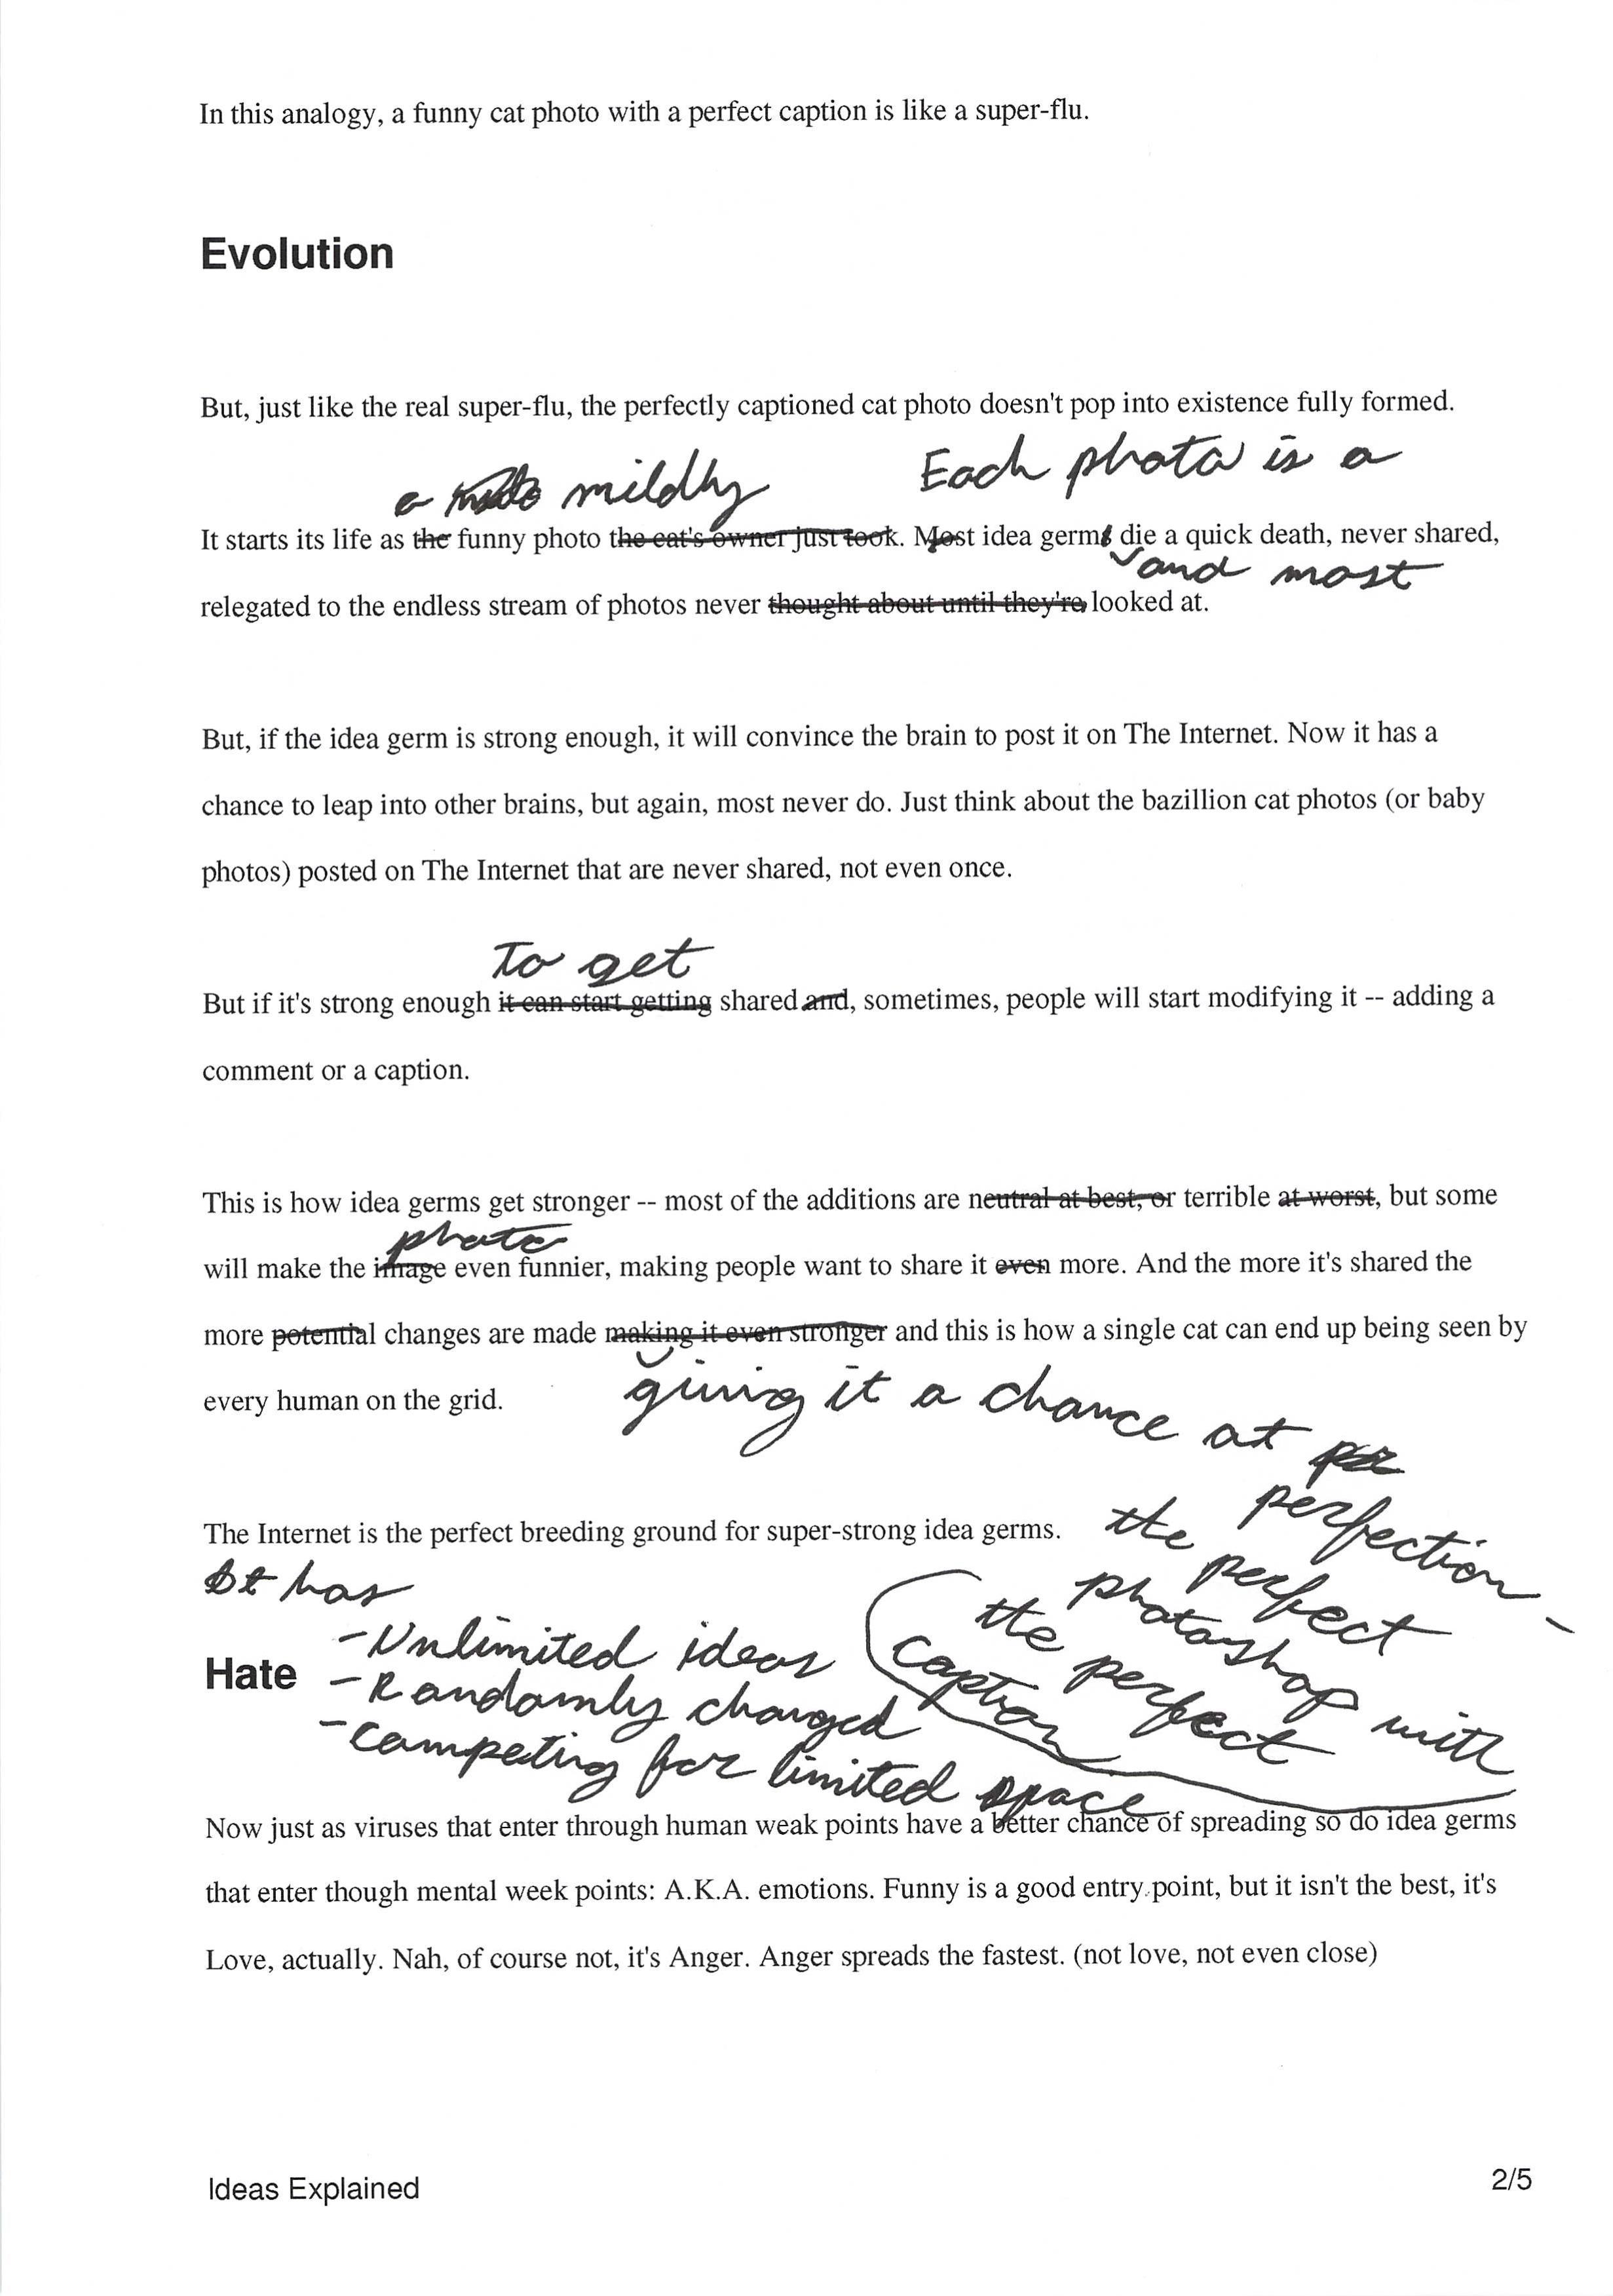 In this analogy, a funny cat photo with a perfect caption is like a super-flu.
Evolution
But, just like the real super-flu, the perfectly captioned cat photo doesn't pop into existence fully formed.
a mildly Each photo is a
It starts its life as the funny photo the cat's owner just took. Most idea germs die a quick death, never shared,
and most
relegated to the endless stream of photos never thought about until they're looked at.
But, if the idea germ is strong enough, it will convince the brain to post it on The Internet. Now it has a
chance to leap into other brains, but again, most never do. Just think about the bazillion cat photos (or baby
photos) posted on The Internet that are never shared, not even once.
To get
But if it's strong enough it can start getting shared and, sometimes, people will start modifying it -- adding a
comment or a caption.
This is how idea germs get stronger -- most of the additions are neutral at best, or terrible at worst, but some
photo
will make the image even funnier, making people want to share it even more. And the more it's shared the
more potential changes are made making it even stronger and this is how a single cat can end up being seen by
every human on the grid.
giving it a chance at
perfection -
the perfect
photoshop with
the perfect
caption
The Internet is the perfect breeding ground for super-strong idea germs.
It has
- Unlimited ideas
Hate
- Randomly changed
- Competing for limited space
Now just as viruses that enter through human weak points have a better chance of spreading so do idea germs
that enter though mental week points: A.K.A. emotions. Funny is a good entry point, but it isn't the best, it's
Love, actually. Nah, of course not, it's Anger. Anger spreads the fastest. (not love, not even close)
Ideas Explained 2/5